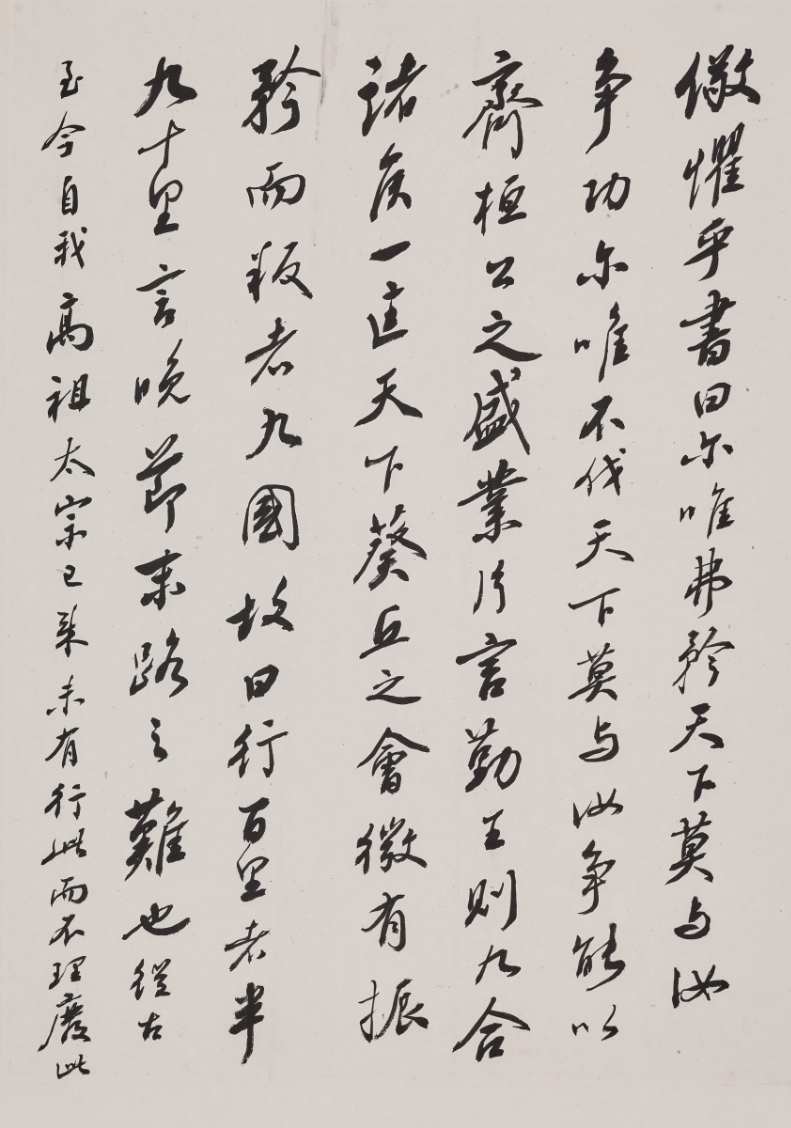 儆懼乎書曰尓唯弗矜天下莫与汝
争功尓唯不伐天下莫与汝争能以
齊桓公之盛業片言勤王則九合
諸侯一匡天下葵丘之會微有振
矜而叛者九國故曰行百里者半
九十里言晚節末路之難也從古
至今自我高祖太宗已来未有行此而不理廢此